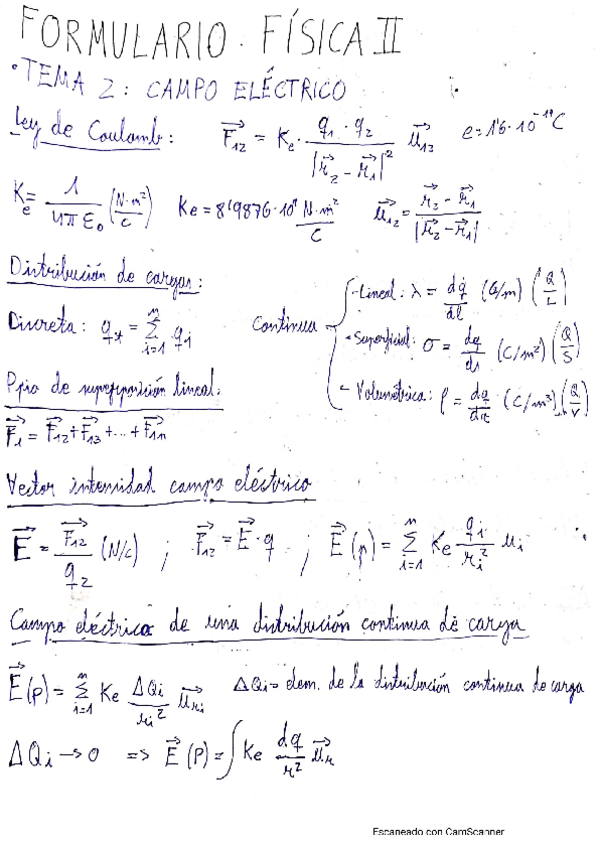 FORMULARIO. FÍSICA II
• TEMA 2: CAMPO ELÉCTRICO
Ley de Coulomb: F⃗₁₂ = Ke · (q₁ · q₂) / |r⃗₂ - r⃗₁|² u⃗₁₂ e = 1'6·10⁻¹⁹C
Ke = 1 / (4π ε₀) (N·m²/C) Ke = 8'9876·10⁹ N·m²/C u⃗₁₂ = (r⃗₂ - r⃗₁) / |r⃗₂ - r⃗₁|
Distribución de cargas:
Discreta: q_t = Σ_{i=1}^{n} q_i
Continua
- Lineal: λ = dq/dl (C/m) (Q/L)
- Superficial: σ = dq/ds (C/m²) (Q/S)
- Volumétrica: ρ = dq/dv (C/m³) (Q/V)
Ppio de superposición lineal:
F⃗₁ = F⃗₁₂ + F⃗₁₃ + ... + F⃗₁ₙ
Vector intensidad campo eléctrico
E⃗ = F⃗₁₂ / q₂ (N/C) ; F⃗₁₂ = E⃗ · q ; E⃗(p) = Σ_{i=1}^{n} Ke q_i / r_i² u_i
Campo eléctrico de una distribución continua de carga
E⃗(p) = Σ_{i=1}^{n} Ke ΔQi / r_i² u⃗_{ri} ΔQi = elem. de la distribución continua de carga
ΔQi → 0 ⇒ E⃗(P) = ∫ Ke dq / r² u⃗_r
Escaneado con CamScanner